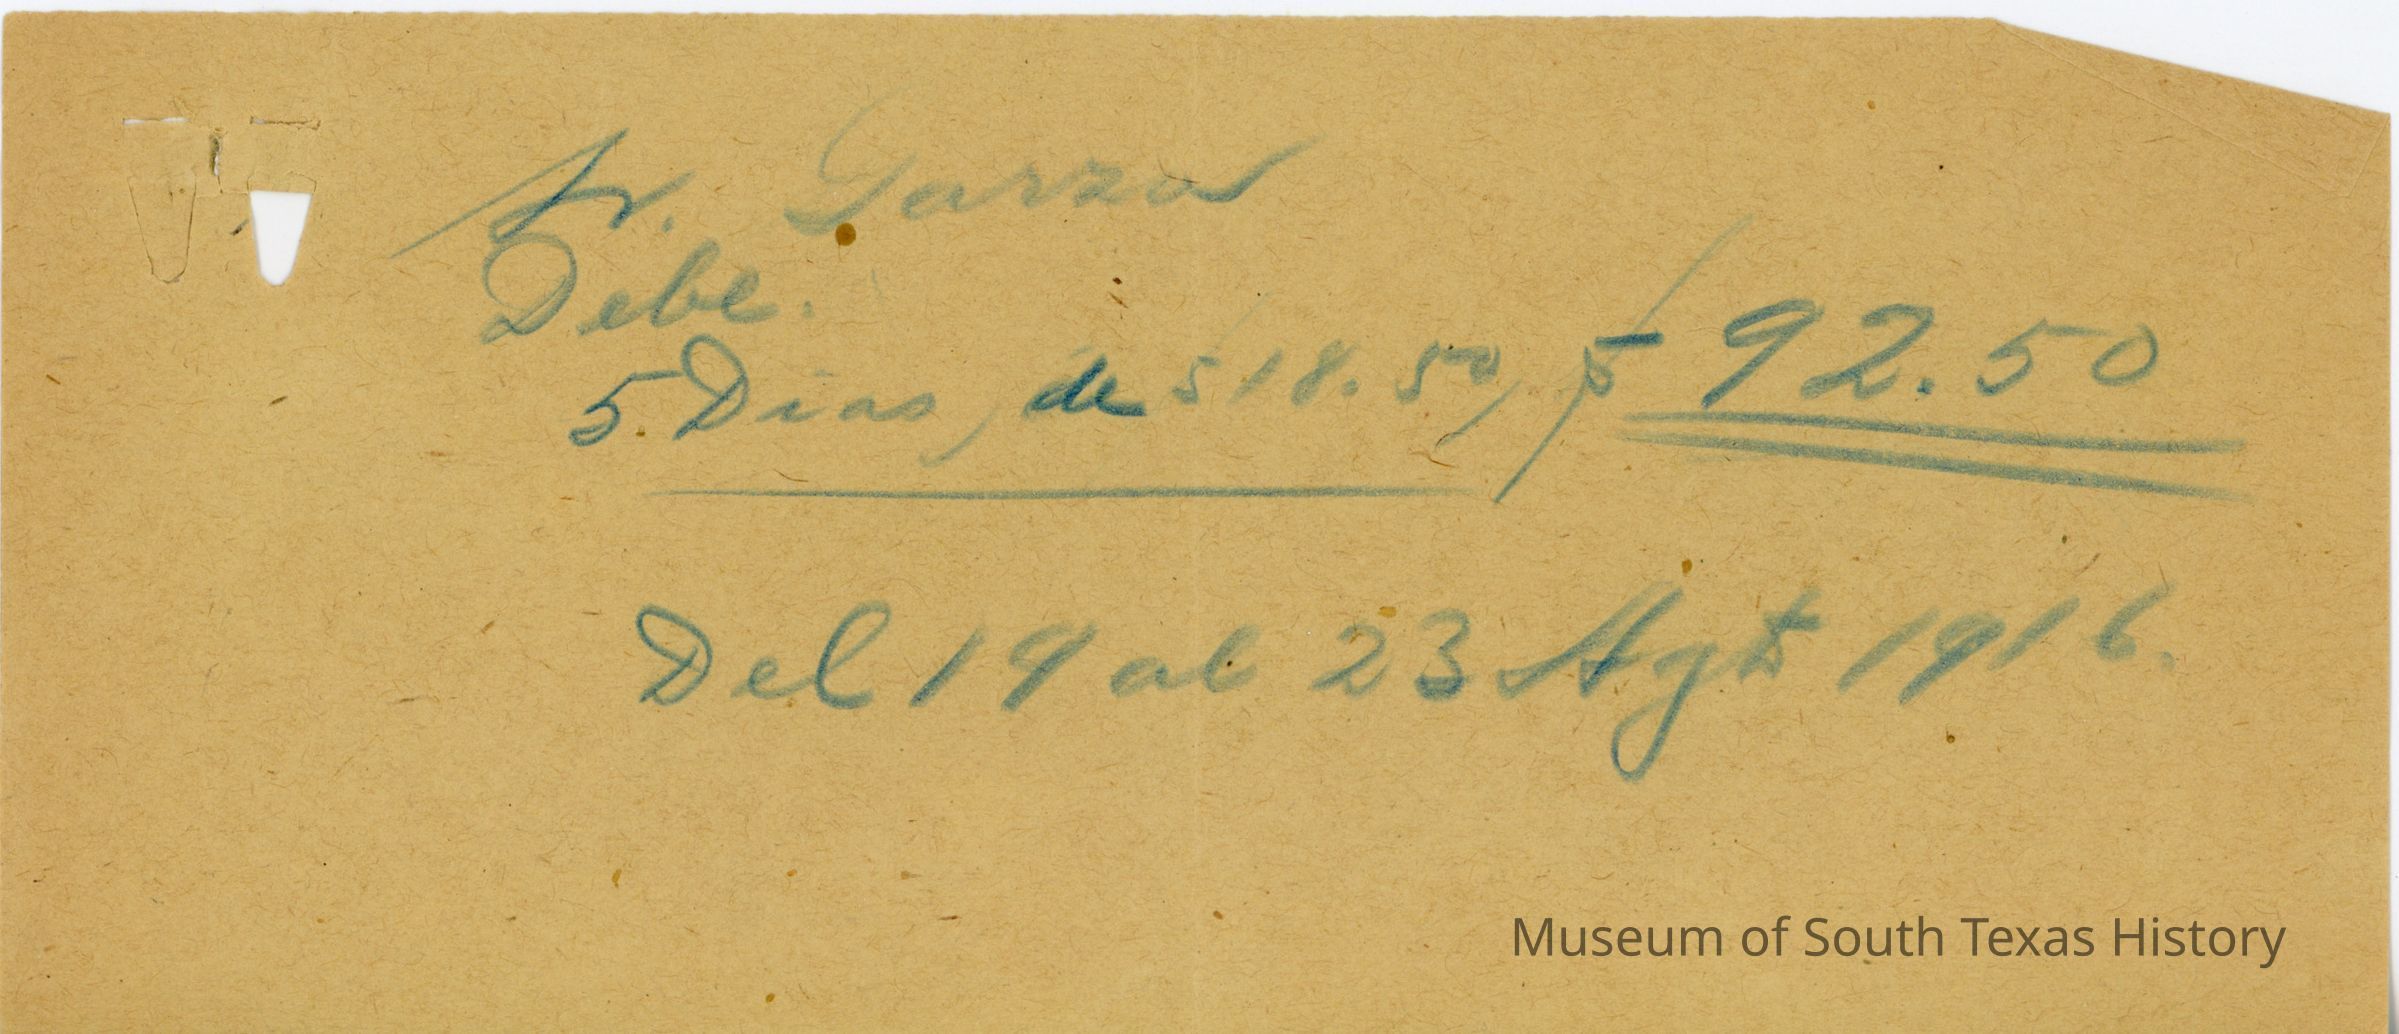 Sr. Garza
Debe.
5 Dias, de $18.50, $ 92.50
Del 19 al 23 Agto 1916.
Museum of South Texas History